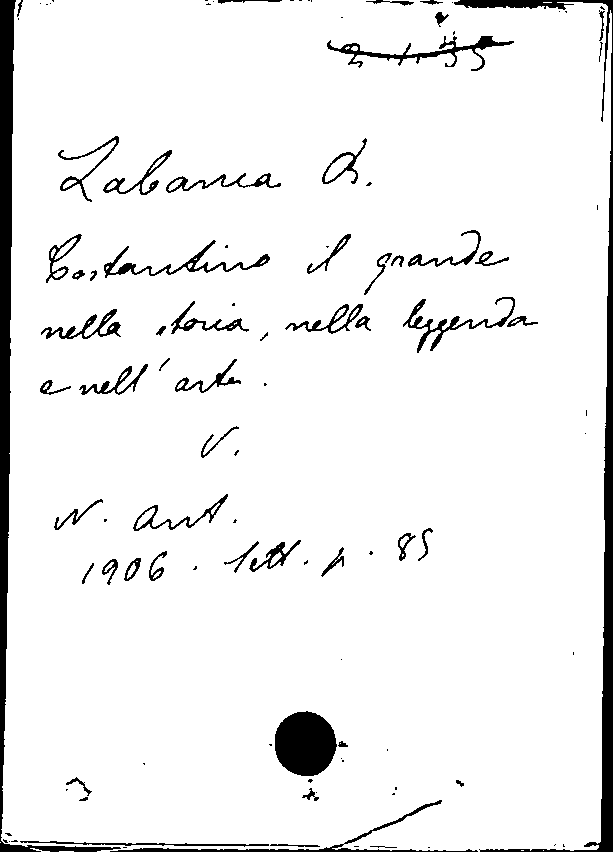 2.1.35
Labanca B.
Costantino il grande
nella storia, nella leggenda
e nell'arte.
V.
N. Ant.
1906. Sett. p. 85